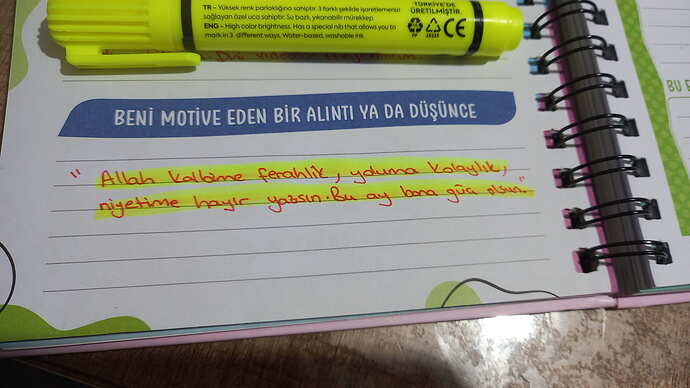 TR – Yüksek renk parlaklığına sahiptir. 3 farklı şekilde işaretlemenizi
sağlayan özel uca sahiptir. Su bazlı, yıkanabilir mürekkep.
ENG – High color brightness. Has a special nib that allows you to
mark in 3 different ways. Water-based, washable ink.
TÜRKİYE'DE
ÜRETİLMİŞTİR.
CE
BENİ MOTİVE EDEN BİR ALINTI YA DA DÜŞÜNCE
BU
"Allah kalbime ferahlık, yoluma kolaylık,
niyetime hayır yazsın. Bu ay bana güç olsun."